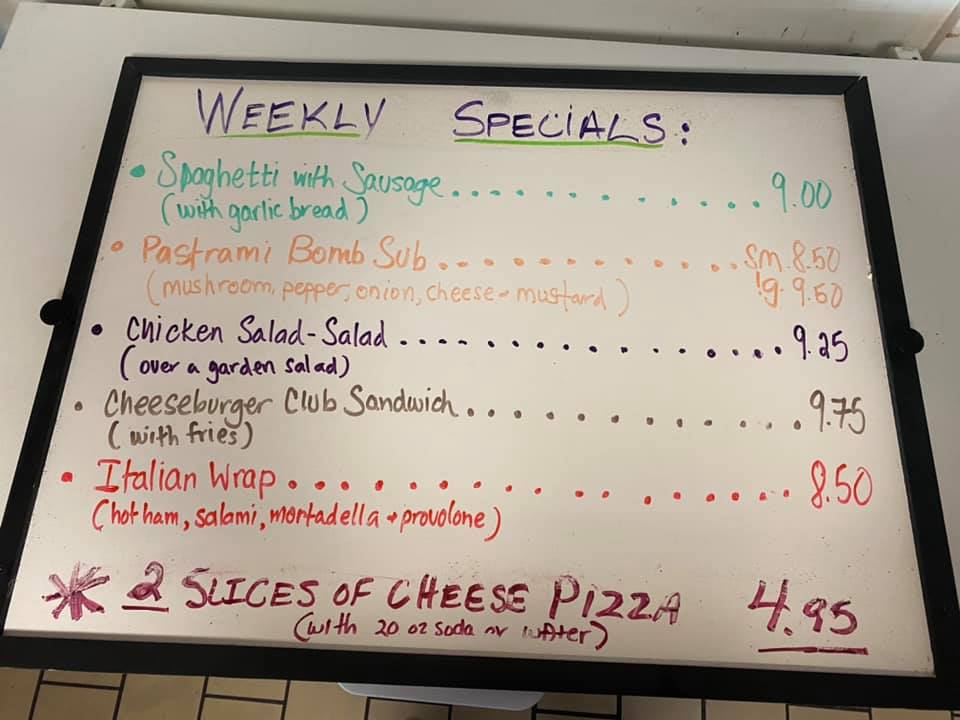 WEEKLY SPECIALS:
• Spaghetti with Sausage............ 9.00
(with garlic bread)
• Pastrami Bomb Sub............ Sm. 8.50
(mushroom, pepper, onion, cheese + mustard) lg. 9.50
• Chicken Salad-Salad............... 9.25
(over a garden salad)
• Cheeseburger Club Sandwich............ 9.75
(with fries)
• Italian Wrap............... 8.50
(hot ham, salami, mortadella + provolone)
* 2 SLICES OF CHEESE PIZZA 4.95
(with 20 oz soda or water)